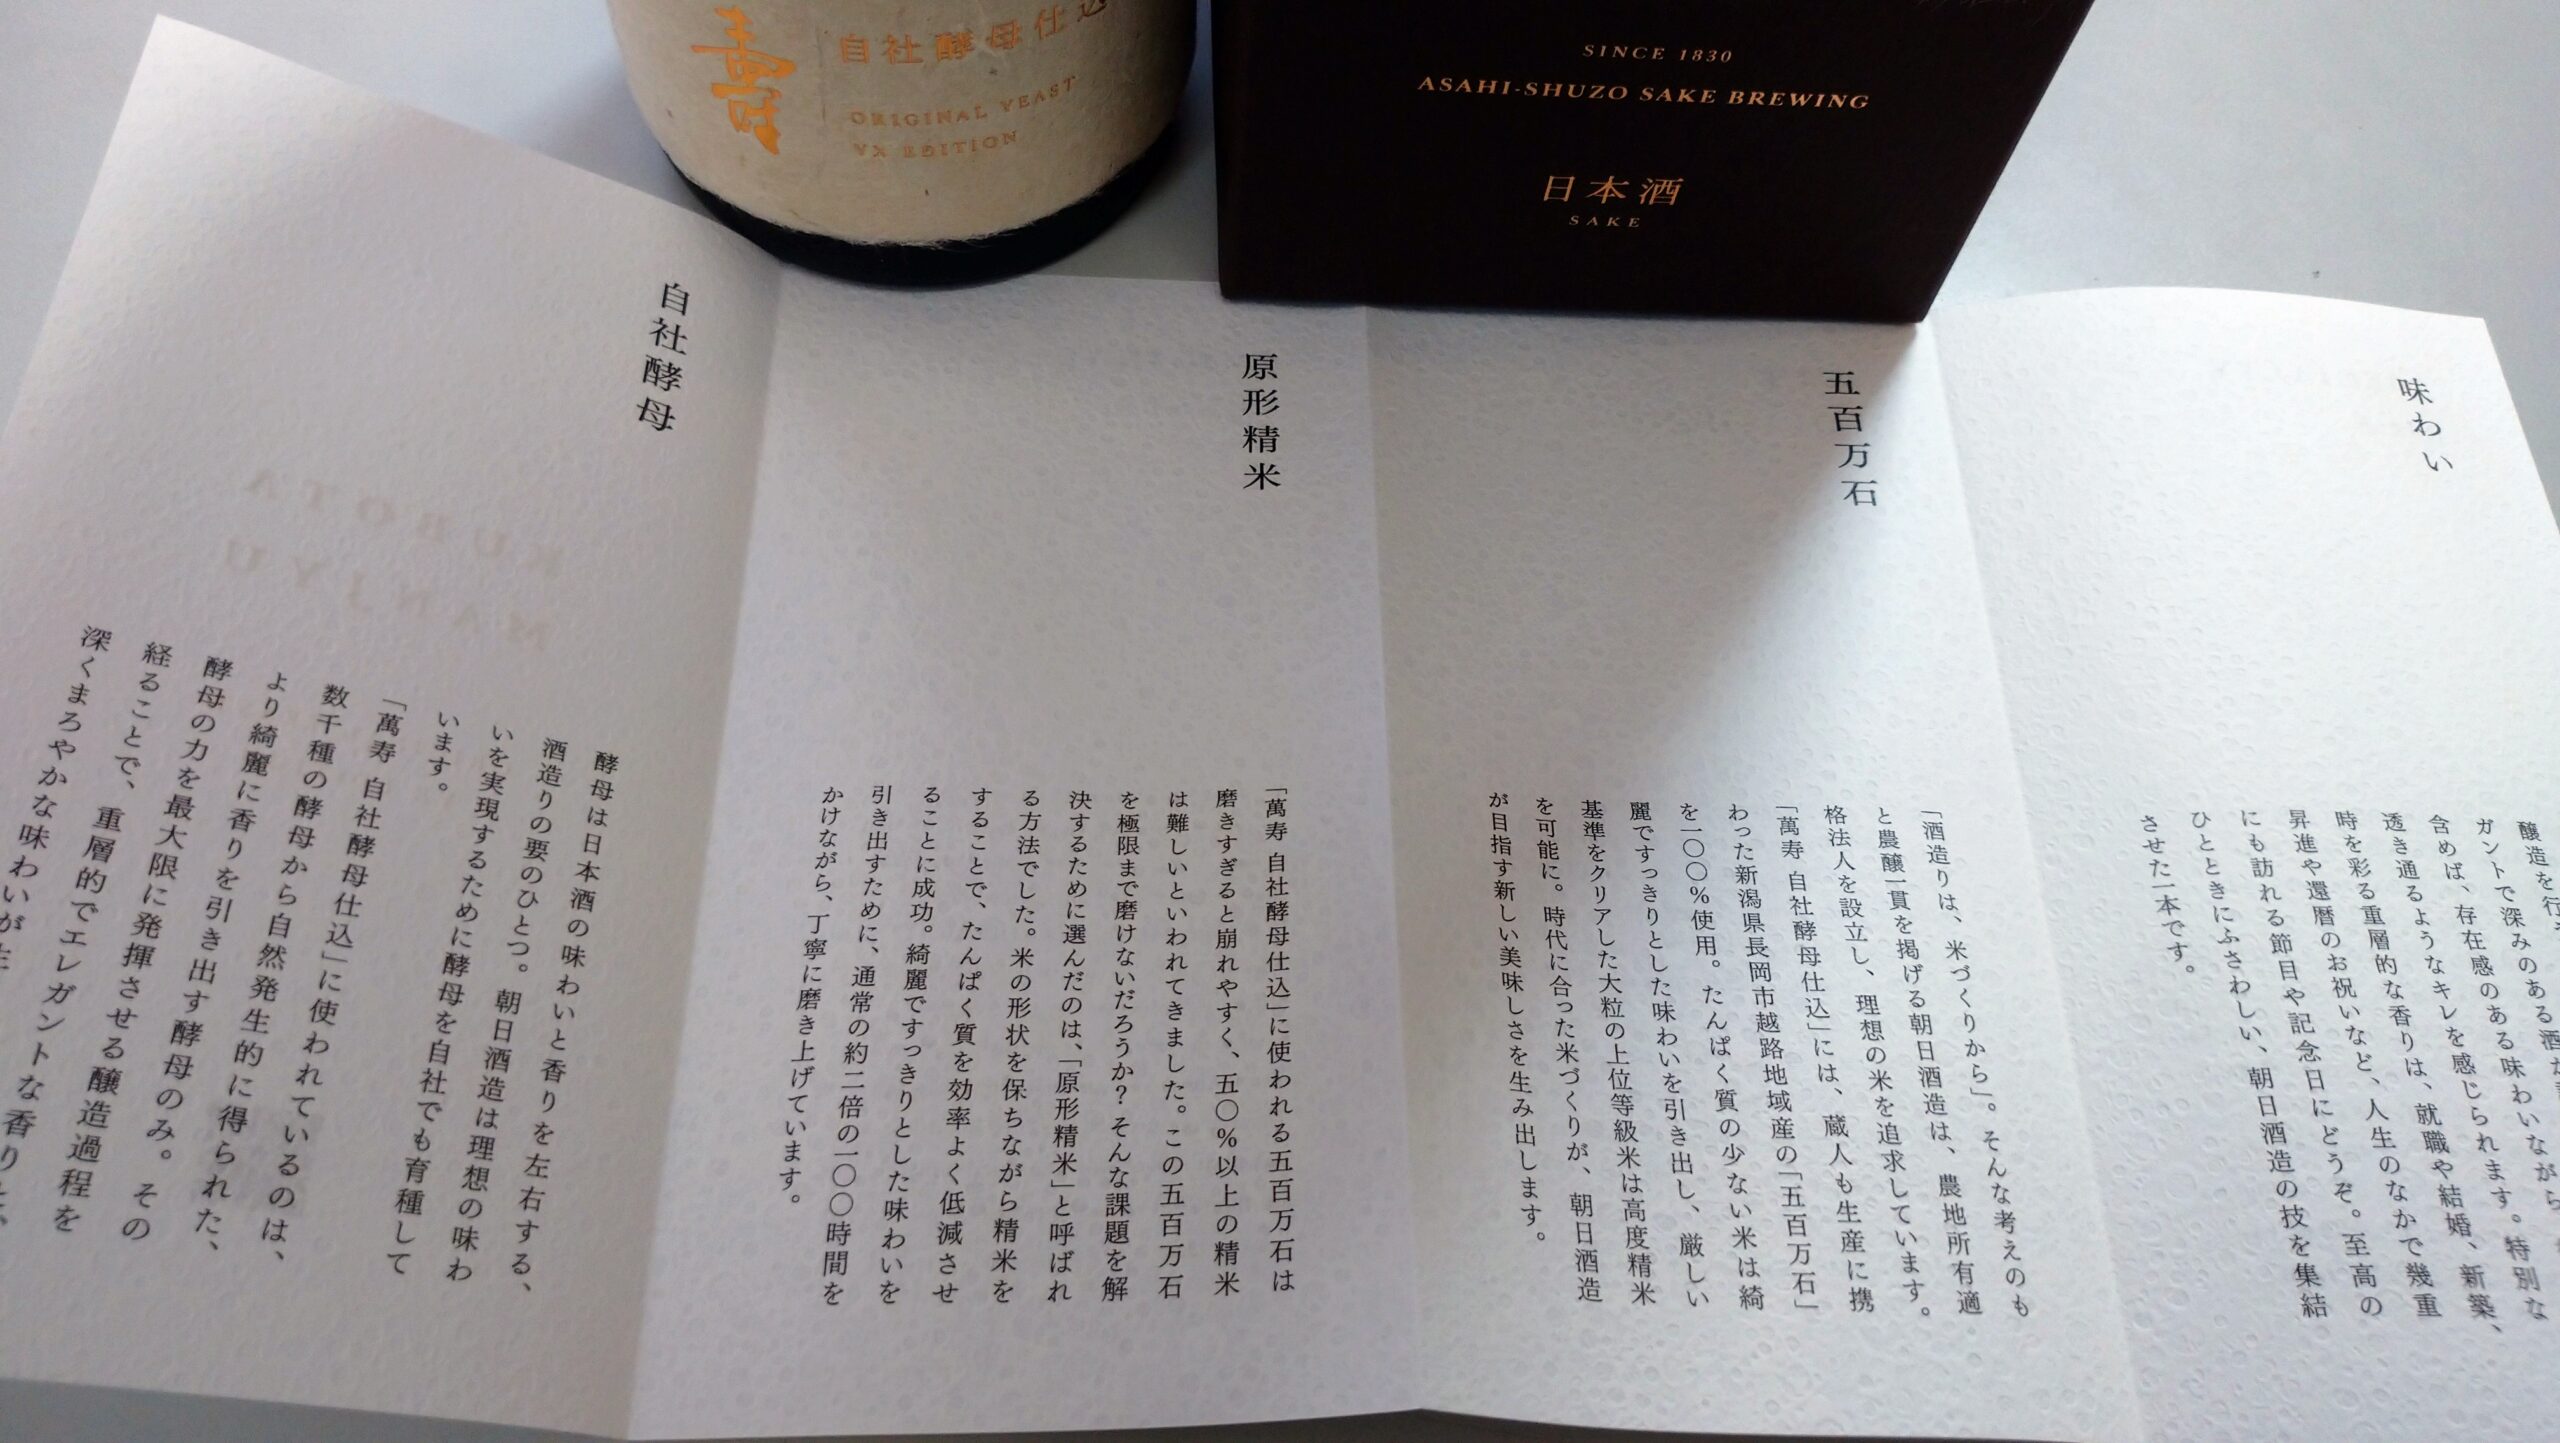 寿
自社酵母仕込
ORIGINAL YEAST
VX EDITION
SINCE 1830
ASAHI-SHUZO SAKE BREWING
日本酒
SAKE
味わい
醸造を行
ガントで深みのある酒
含めば、存在感のある味わいながら
透き通るようなキレを感じられます。特別な
時を彩る重層的な香りは、就職や結婚、新築、
昇進や還暦のお祝いなど、人生のなかで幾重
にも訪れる節目や記念日にどうぞ。至高の
ひとときにふさわしい、朝日酒造の技を集結
させた一本です。
五百万石
「酒造りは、米づくりから」。そんな考えのも
と農醸一貫を掲げる朝日酒造は、農地所有適
格法人を設立し、理想の米を追求しています。
「萬寿 自社酵母仕込」には、蔵人も生産に携
わった新潟県長岡市越路地域産の「五百万石」
を一〇〇%使用。たんぱく質の少ない米は綺
麗ですっきりとした味わいを引き出し、厳しい
基準をクリアした大粒の上位等級米は高度精米
を可能に。時代に合った米づくりが、朝日酒造
が目指す新しい美味しさを生み出します。
原形精米
「萬寿 自社酵母仕込」に使われる五百万石は
磨きすぎると崩れやすく、五〇%以上の精米
は難しいといわれてきました。この五百万石
を極限まで磨けないだろうか? そんな課題を解
決するために選んだのは、「原形精米」と呼ばれ
る方法でした。米の形状を保ちながら精米を
することで、たんぱく質を効率よく低減させ
ることに成功。綺麗ですっきりとした味わいを
引き出すために、通常の約二倍の一〇〇時間を
かけながら、丁寧に磨き上げています。
自社酵母
酵母は日本酒の味わいと香りを左右する、
酒造りの要のひとつ。朝日酒造は理想の味わ
いを実現するために酵母を自社でも育種して
います。
「萬寿 自社酵母仕込」に使われているのは、
数千種の酵母から自然発生的に得られた、
より綺麗に香りを引き出す酵母のみ。その
酵母の力を最大限に発揮させる醸造過程を
経ることで、重層的でエレガントな香りと、
深くまろやかな味わいが生
KUBOTA
MANJYU